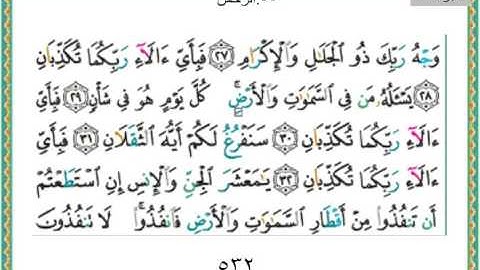 وَجْهُ رَبِّكَ ذُو الْجَلَالِ وَالْإِكْرَامِ ﴿٢٧﴾ فَبِأَيِّ ءَالَآءِ رَبِّكُمَا تُكَذِّبَانِ
﴿٢٨﴾ يَسْـَٔلُهُۥ مَن فِي السَّمَٰوَٰتِ وَالْأَرْضِ ۚ كُلَّ يَوْمٍ هُوَ فِي شَأْنٍ ﴿٢٩﴾ فَبِأَيِّ
ءَالَآءِ رَبِّكُمَا تُكَذِّبَانِ ﴿٣٠﴾ سَنَفْرُغُ لَكُمْ أَيُّهَ الثَّقَلَانِ ﴿٣١﴾ فَبِأَيِّ
ءَالَآءِ رَبِّكُمَا تُكَذِّبَانِ ﴿٣٢﴾ يَٰمَعْشَرَ الْجِنِّ وَالْإِنسِ إِنِ اسْتَطَعْتُمْ
أَن تَنفُذُوا۟ مِنْ أَقْطَارِ السَّمَٰوَٰتِ وَالْأَرْضِ فَانفُذُوا۟ ۚ لَا تَنفُذُونَ
٥٣٢